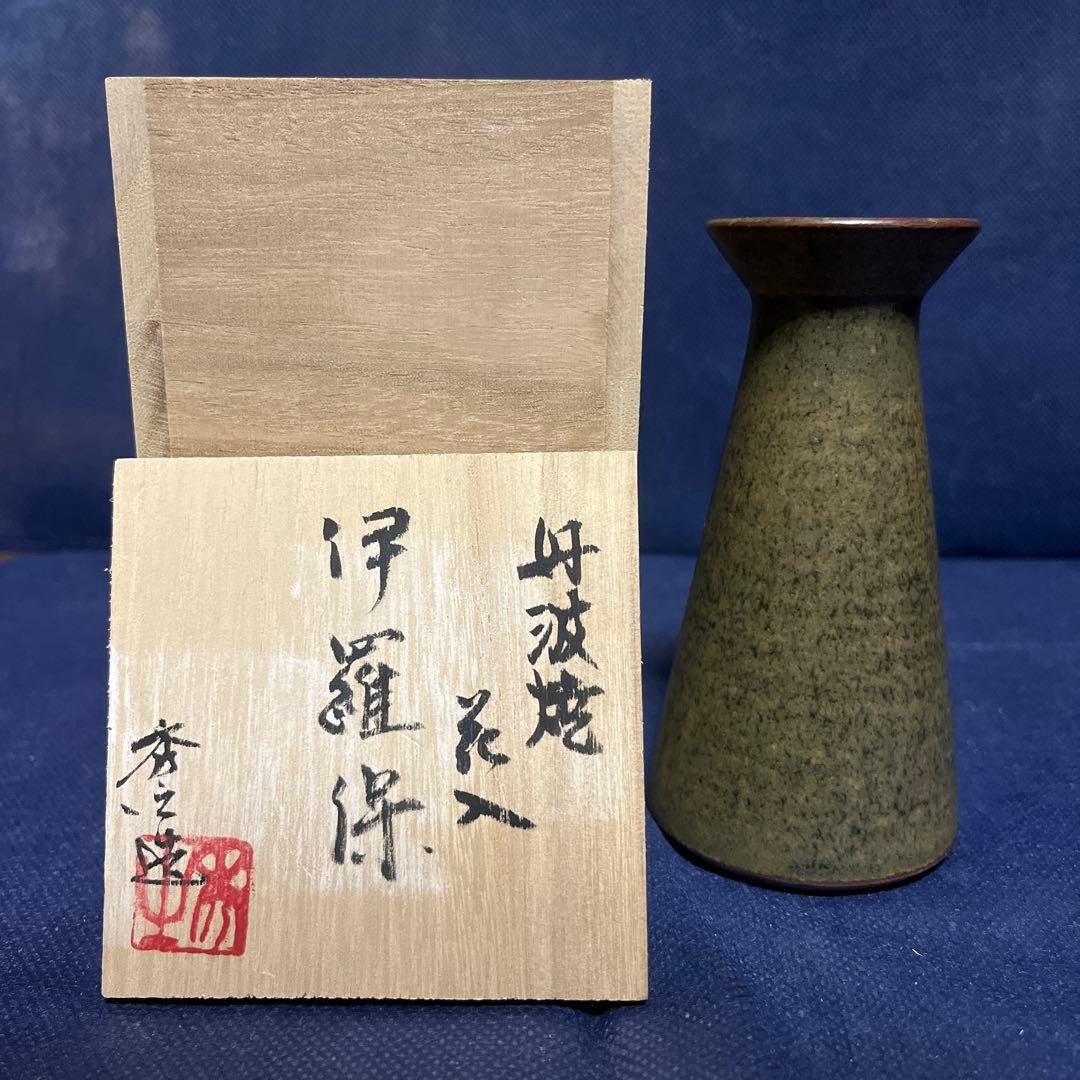 丹波焼
花入
伊羅保
造